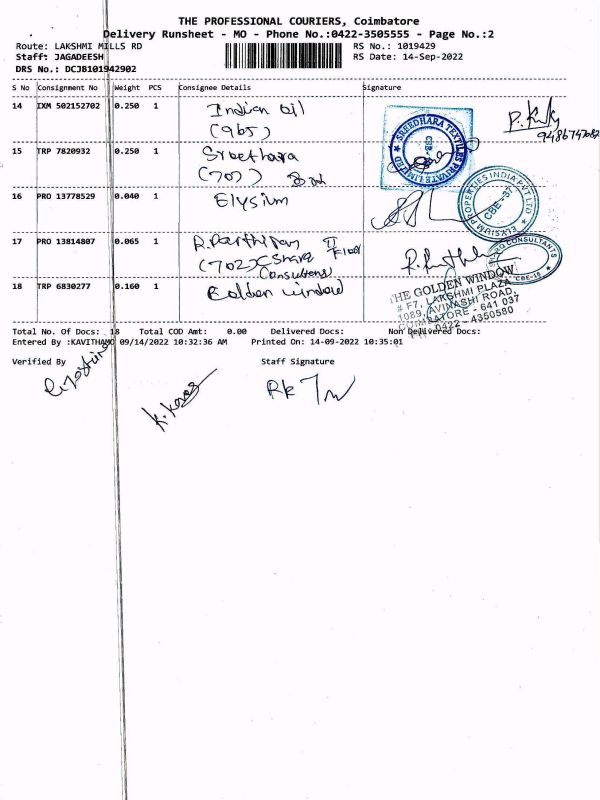 THE PROFESSIONAL COURIERS, Coimbatore
Delivery Runsheet - MO - Phone No.:0422-3505555 - Page No.:2
Route: LAKSHMI MILLS RD RS No.: 1019429
Staff: JAGADEESH RS Date: 14-Sep-2022
DRS No.: DCJB101942902
S No Consignment No Weight PCS Consignee Details Signature
14 IXM 502152702 0.250 1 Indian Oil
(965)
SREEDHARA TEXTILES PRIVATE LIMITED
CBE-
15 TRP 7820932 0.250 1 Sreethara
(707)
16 PRO 13778529 0.040 1 Elysium
ELYSIUM PROPERTIES INDIA PVT LTD
CBE-37
17 PRO 13814807 0.065 1 R.Parthipan II Floor
(702) (Share
Consultans)
CONSULTANTS
CBE-18
18 TRP 6830277 0.160 1 Golden window
THE GOLDEN WINDOW
# F7, LAKSHMI PLAZA
1089, AVINASHI ROAD,
COIMBATORE - 641 037
0422 - 4350580
Total No. Of Docs: 18 Total COD Amt: 0.00 Delivered Docs: Non Delivered Docs:
Entered By :KAVITHAMO 09/14/2022 10:32:36 AM Printed On: 14-09-2022 10:35:01
Verified By Staff Signature